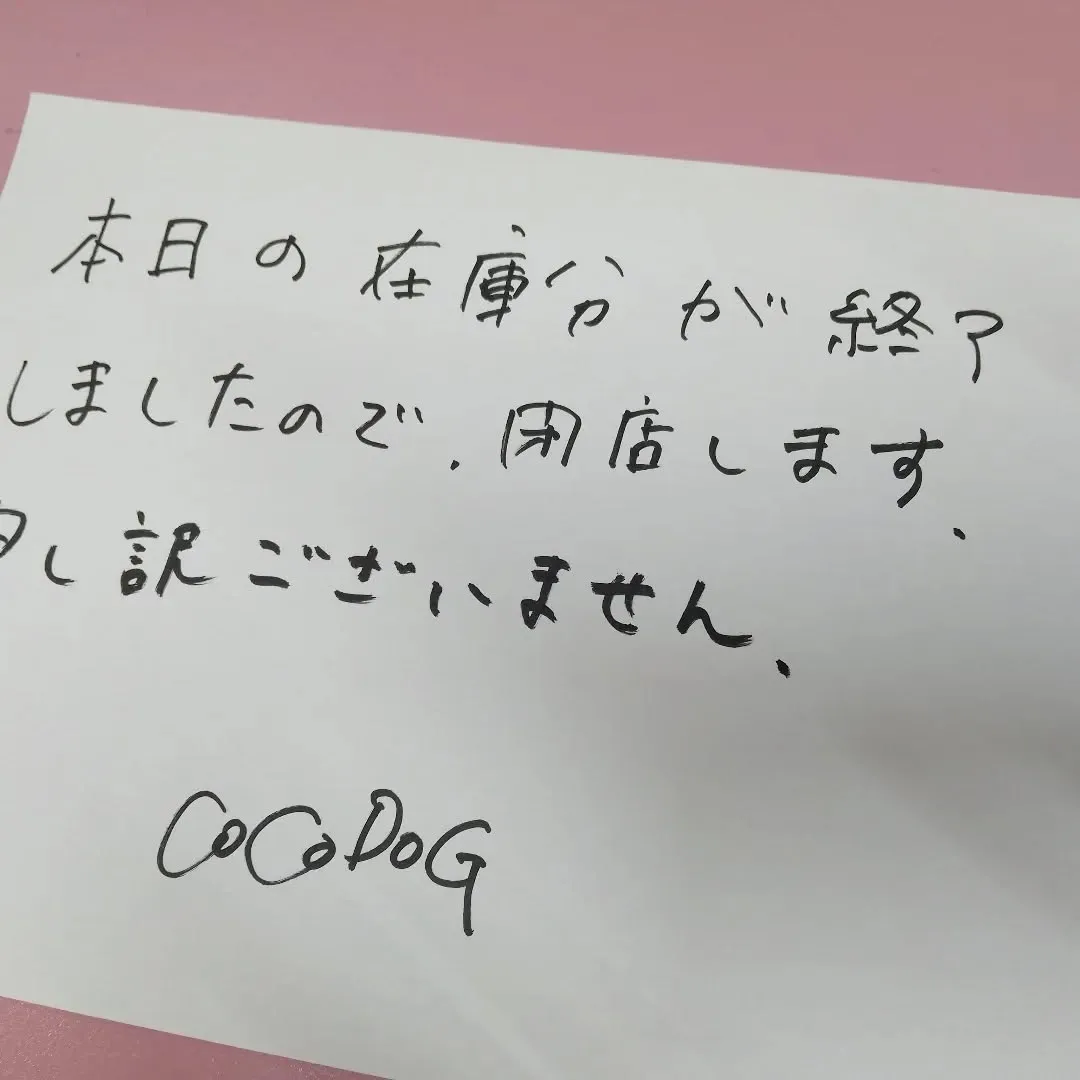 本日の在庫分が終了
しましたので、閉店します、
申し訳ございません、
CoCoDoG